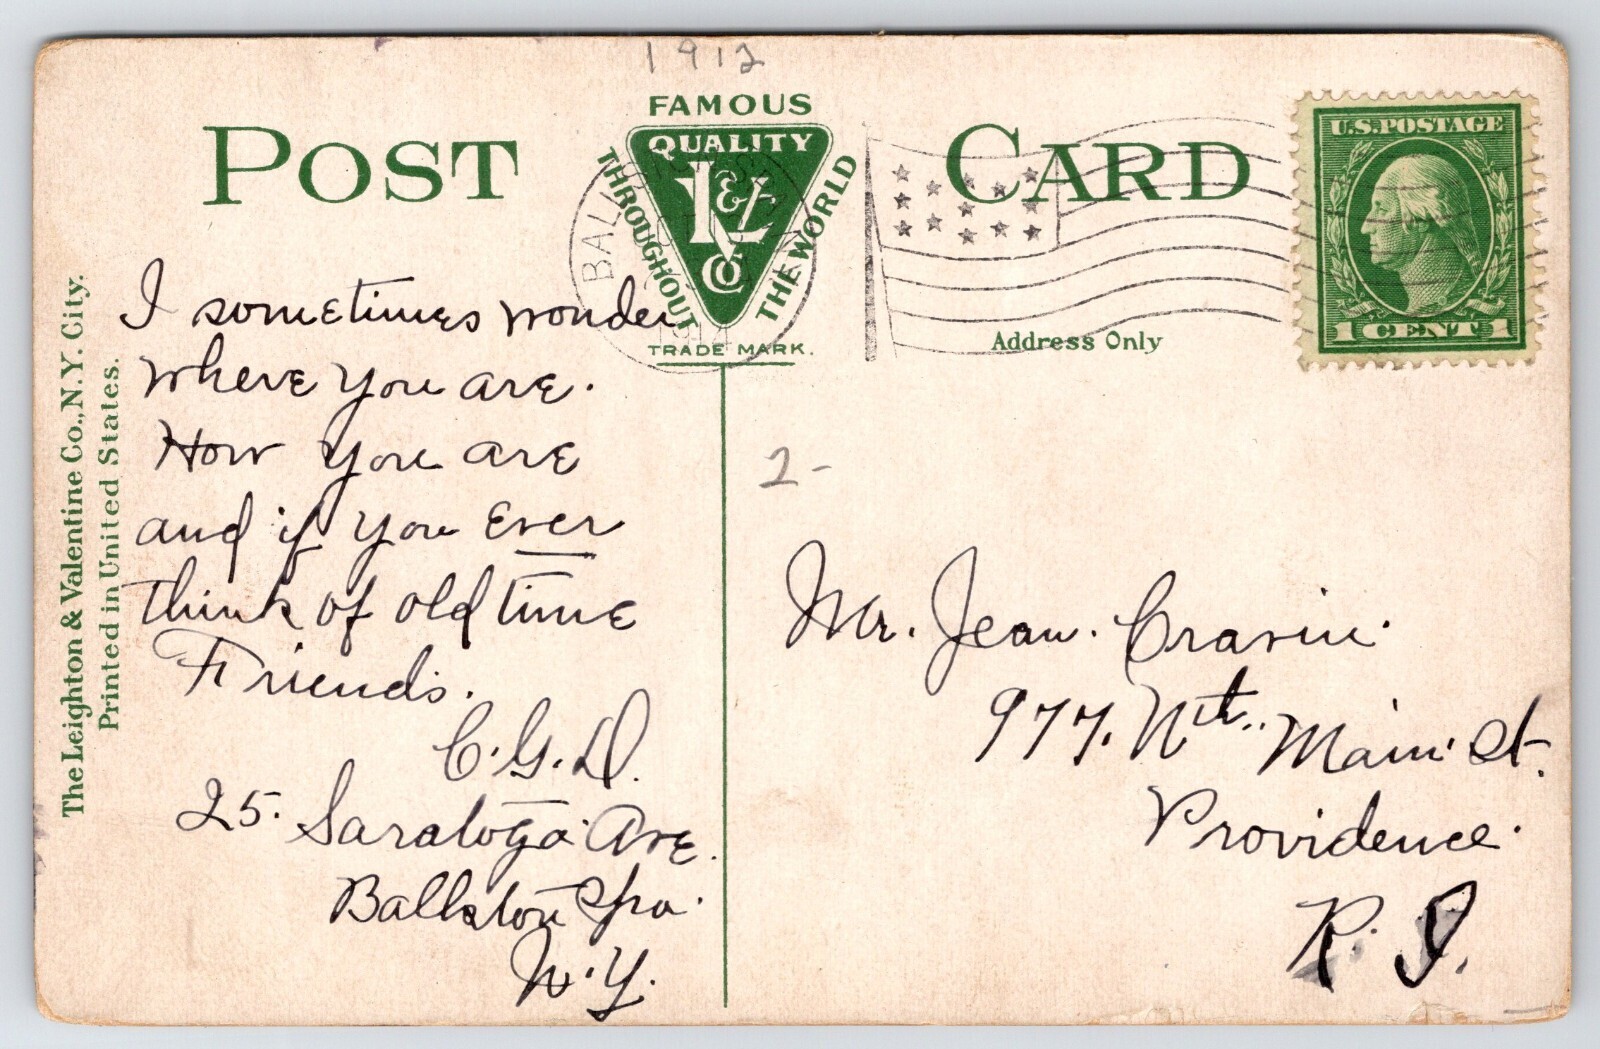 1912
POST CARD
FAMOUS
QUALITY
L&V
CO
THROUGHOUT
THE WORLD
TRADE MARK.
Address Only
U.S. POSTAGE
1 CENT 1
The Leighton & Valentine Co., N.Y. City.
Printed in United States.
I sometimes wonder
where you are.
How you are
and if you ever
think of old time
Friends.
C.G.D.
25. Saratoga Ave.
Ballston Spa.
N.Y.
2-
Mr. Jean. Cravin.
977. Nth.. Main St.
Providence.
R. I.